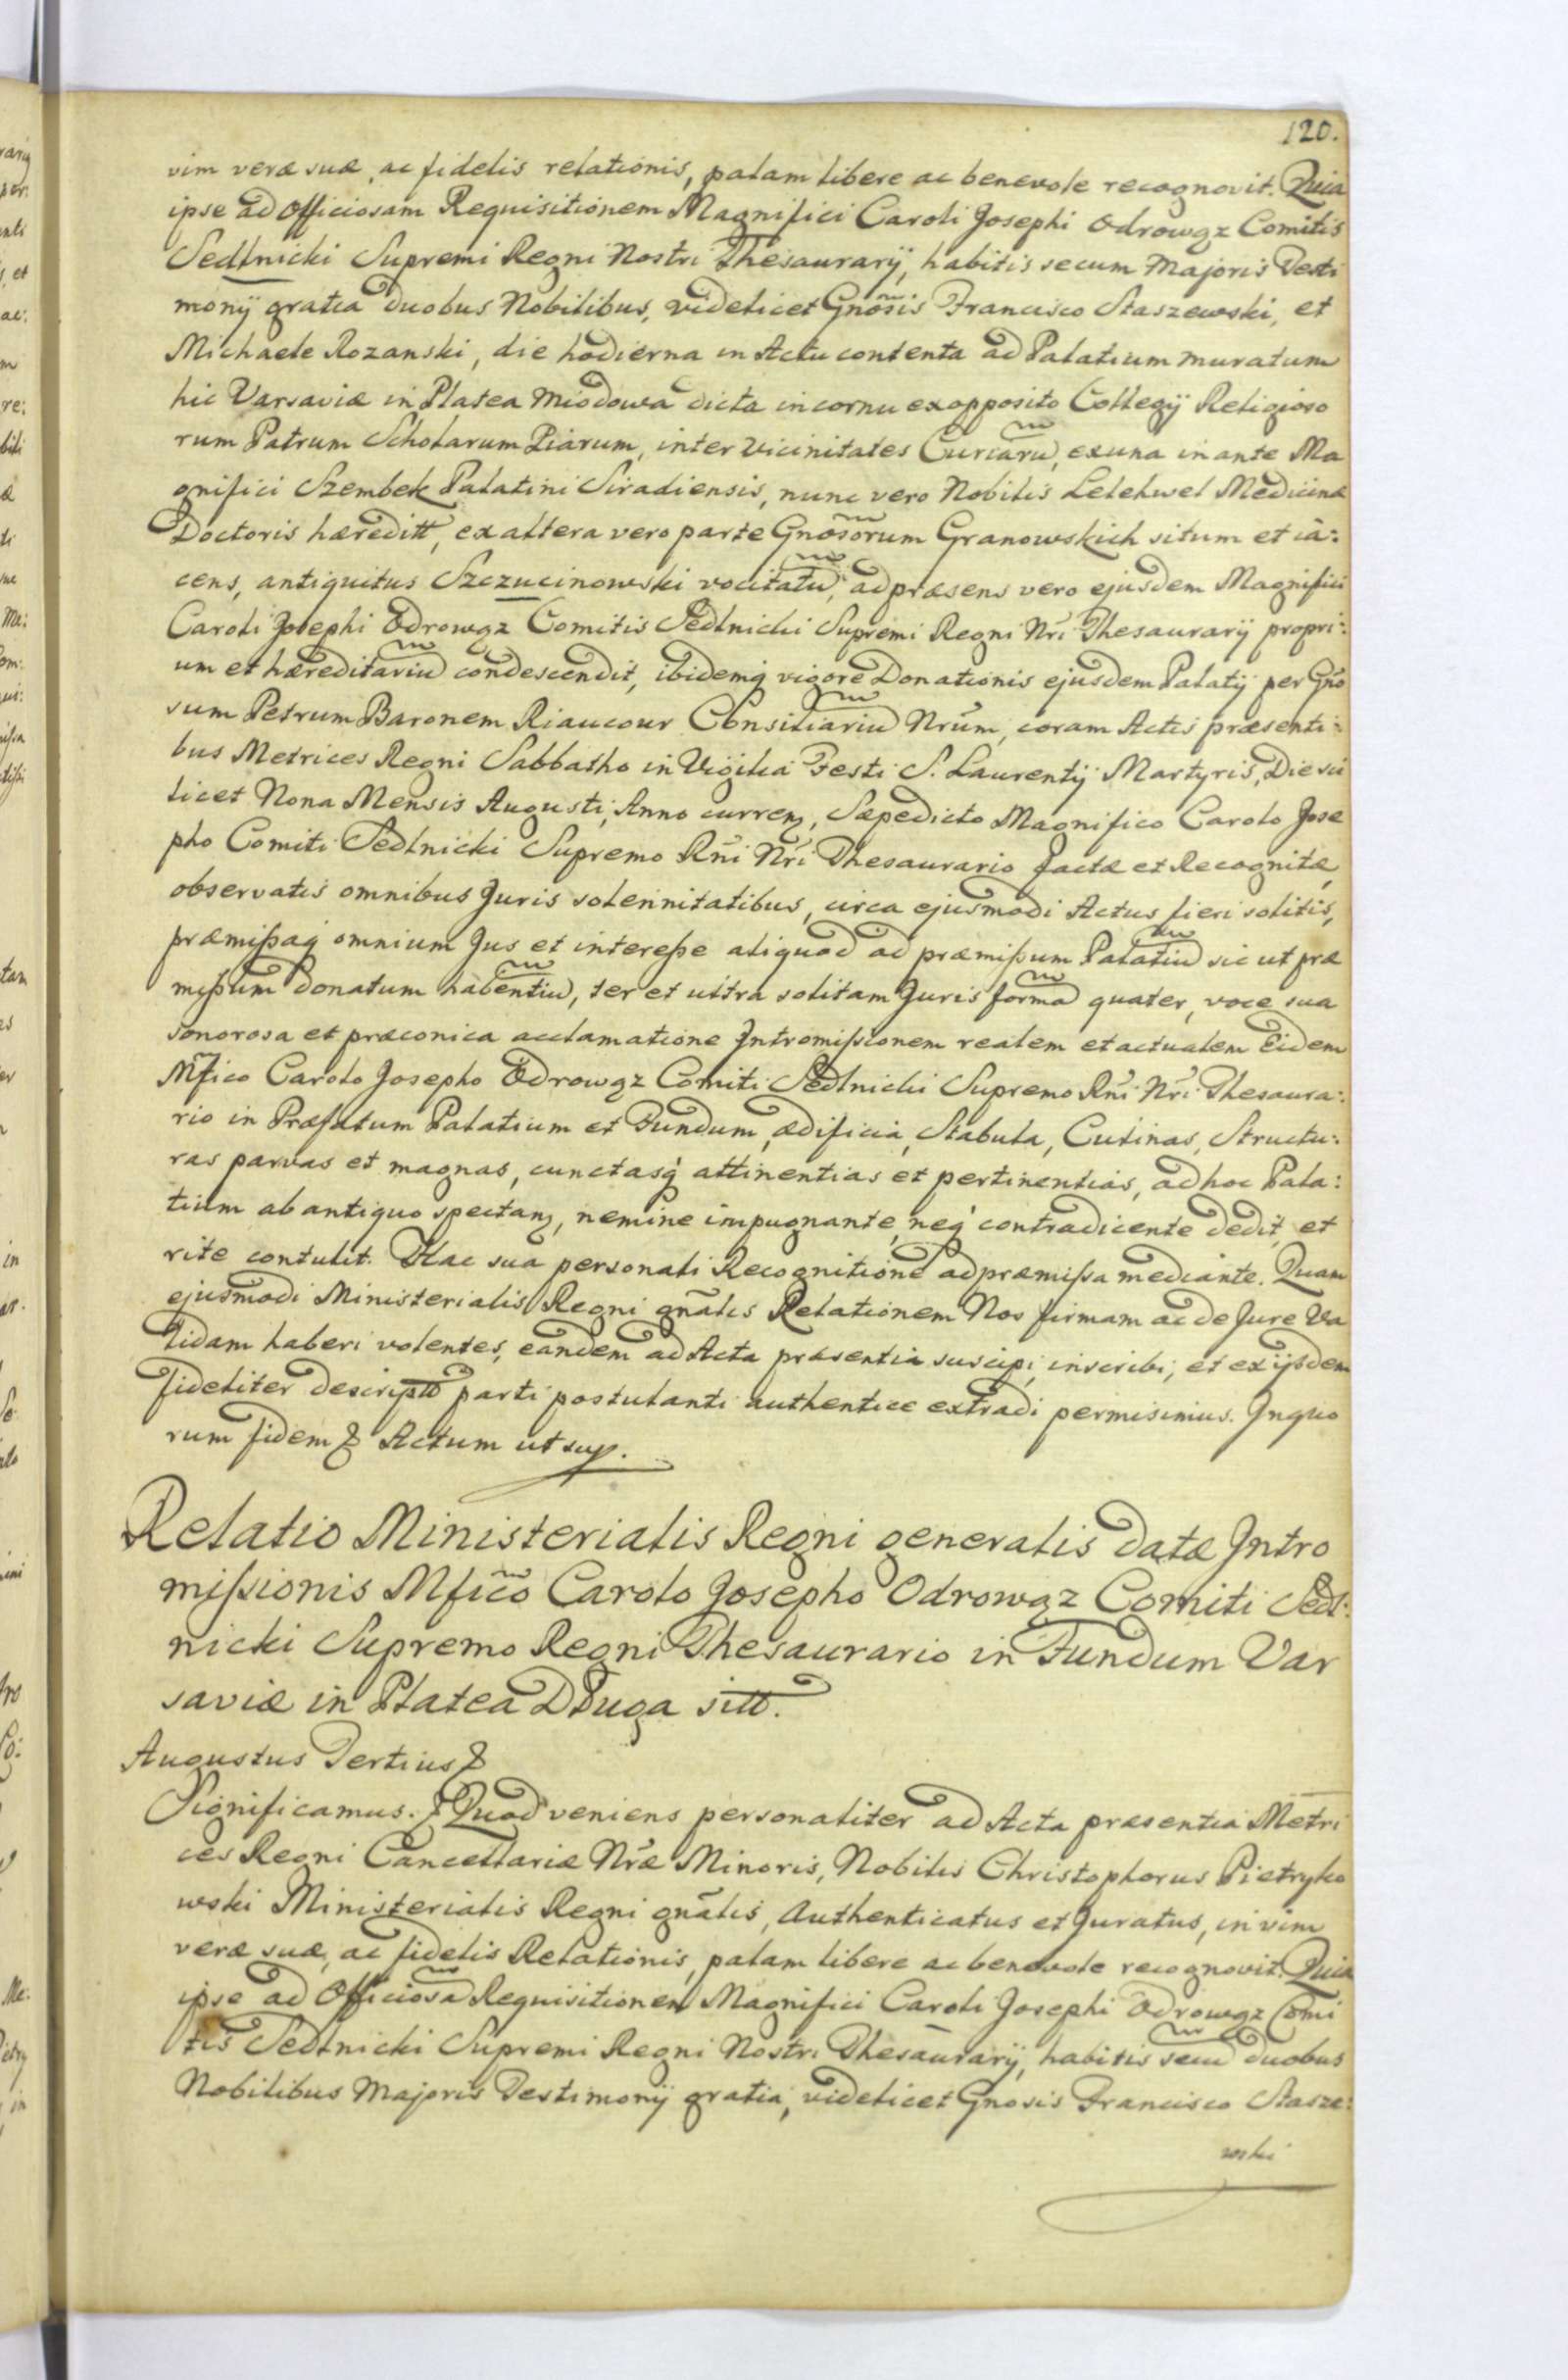 120.
vim veræ suæ, ac fidelis relationis, palam libere ac benevole recognovit. Quia
ipse ad Officiosam Requisitionem Magnifici Caroli Josephi Odrowąz Comitis
Sedlnicki Supremi Regni Nostri Thesaurarij, habitis secum Majoris Testi
monij gratia duobus Nobilibus, videlicet Gnõsis Francisco Staszewski, et
Michaele Rozanski, die hodierna in Actu contenta ad Palatium muratum
hic Varsaviæ in Platea Miodowa dicta in cornu ex opposito Collegij Religioso
rum Patrum Scholarum Piarum, inter vicinitates Curiarũ, ex una in ante Ma
gnifici Szembek Palatini Siradiensis, nunc vero Nobilis Lelehwel Medicinæ
Doctoris hæreditt, ex altera vero parte Gnõsorum Granowskich situm et ia:
cens, antiquitus Szczucinowski vocitatũ, ad præsens vero ejusdem Magnifici
Caroli Josephi Odrowąz Comitis Sedlnicki Supremi Regni Nrĩ Thesaurarij propri:
um et hæreditariũ condescendit, ibidemq̃ vigore Donationis ejusdem Palatij per Gnõ
sum Petrum Baronem Riaucour Consiliariũ Nrũm, coram Actis præsenti:
bus Metrices Regni Sabbatho in Vigilia Festi S. Laurentij Martyris, Die sci
licet Nona Mensis Augusti, Anno curreñ, Sæpedicto Magnifico Carolo Jose
pho Comiti Sedlnicki Supremo Rñi Nrĩ Thesaurario factæ et Recognitæ,
observatis omnibus Juris solennitatibus, circa ejusmodi Actus fieri solitis,
præmißaq̃ omnium Jus et intereße aliquod ad præmißum Palatiũ sic ut præ
mißum donatum habentiũ, ter et ultra solitam Juris formã quater, voce sua
sonorosa et præconica acclamatione Intromißionem realem et actualem Eidem
Mfico Carolo Josepho Odrowąz Comiti Sedlnicki Supremo Rñi Nrĩ Thesaura:
rio in Præfatum Palatium et Fundum, ædificia, Stabula, Culinas, Structu:
ras parvas et magnas, cunctasq̃ attinentias et pertinentias, ad hoc Pala:
tium ab antiquo spectañ, nemine impugnante, neq̃ contradicente dedit, et
rite contulit. Hac sua personali Recognitione ad præmißa mediante. Quam
ejusmodi Ministerialis Regni gnãlis Relationem Nos firmam ac de Jure Va
lidam haberi volentes, eandem ad Acta præsentia suscipi, inscribi, et ex ijsdem
fideliter descriptã parti postulanti authentice extradi permisimus. In quo
rum fidem & Actum ut sup.
Relatio Ministerialis Regni generalis datæ Intro
mißionis Mficõ Carolo Josepho Odrowąz Comiti Sedl:
nicki Supremo Regni Thesaurario in Fundum Var
saviæ in Platea Długa sitt.
Augustus Tertius &
Significamus. & Quod veniens personaliter ad Acta præsentia Metri
ces Regni Cancellariæ Nræ̃ Minoris, Nobilis Christophorus Pietryko
wski Ministerialis Regni gnãlis, Authenticatus et Juratus, in vim
veræ suæ, ac fidelis Relationis, palam libere ac benevole recognovit. Quia
ipse ad Officiosã Requisitionem Magnifici Caroli Josephi Odrowąz Comi
tis Sedlnicki Supremi Regni Nostri Thesaurarij, habitis secũ duobus
Nobilibus Majoris Testimonij gratia, videlicet Gnosis Francisco Stasze:
wski